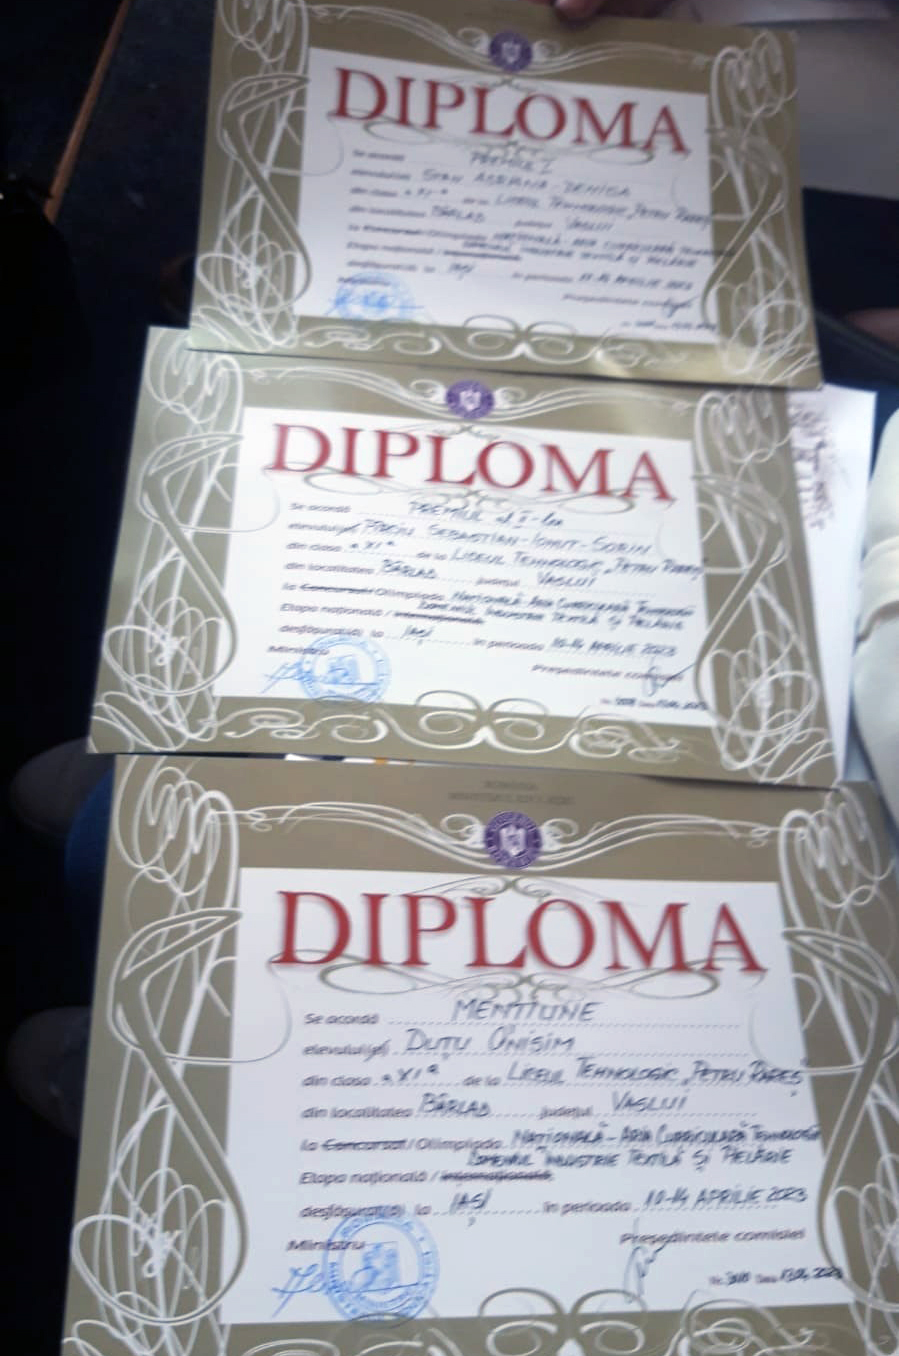 DIPLOMA
Se acordă PREMIUL I
STAN ADRIANA-DENISA
din clasa a XI a de la LICEUL TEHNOLOGIC „PETRU RAREȘ"
din localitatea BÂRLAD județul VASLUI
la Concursul/Olimpiada NAȚIONALĂ-ARIA CURRICULARĂ
DOMENIUL INDUSTRIE TEXTILĂ ȘI PIELĂRIE
Etapa națională /
desfășurat(ă) la IAȘI în perioada APRILIE 2023
Președintele comisiei
DIPLOMA
Se acordă PREMIUL al
elevului(ei) SEBASTIAN-IONUȚ-SORIN
din clasa a XI a de la LICEUL TEHNOLOGIC „PETRU RAREȘ"
din localitatea BÂRLAD județul VASLUI
la Concursul/Olimpiada NAȚIONALĂ-ARIA CURRICULARĂ TEHNOLOGII
DOMENIUL INDUSTRIE TEXTILĂ ȘI PIELĂRIE
Etapa națională / internațională
desfășurat(ă) la IAȘI în perioada 10-14 APRILIE 2023
Ministru
Președintele comisiei
DIPLOMA
Se acordă MENȚIUNE
elevului(ei) DUȚU ONISIM
din clasa a XI a de la LICEUL TEHNOLOGIC „PETRU RAREȘ"
din localitatea BÂRLAD județul VASLUI
la Concursul/Olimpiada NAȚIONALĂ-ARIA CURRICULARĂ TEHNOLOGII
DOMENIUL INDUSTRIE TEXTILĂ ȘI PIELĂRIE
Etapa națională / internațională
desfășurat(ă) la IAȘI în perioada 10-14 APRILIE 2023
Ministru
Președintele comisiei